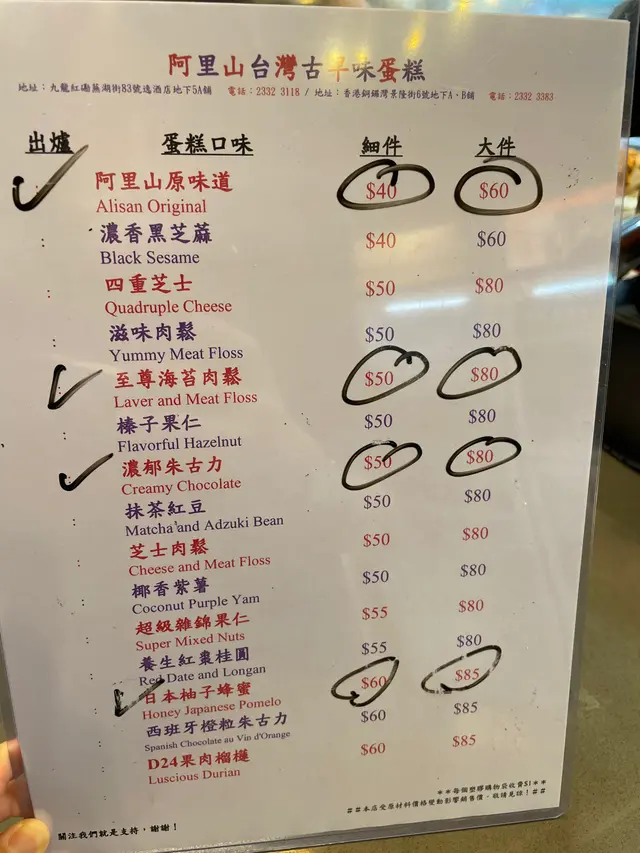 阿里山台灣古早味蛋糕
地址：九龍紅磡蕪湖街83號逸酒店地下5A舖 電話：2332 3118 / 地址：香港銅鑼灣景隆街6號地下A、B舖 電話：2332 3383
出爐 蛋糕口味 細件 大件
阿里山原味道 $40 $60
Alisan Original
濃香黑芝蔴 $40 $60
Black Sesame
四重芝士 $50 $80
Quadruple Cheese
滋味肉鬆 $50 $80
Yummy Meat Floss
至尊海苔肉鬆 $50 $80
Laver and Meat Floss
榛子果仁 $50 $80
Flavorful Hazelnut
濃郁朱古力 $50 $80
Creamy Chocolate
抹茶紅豆 $50 $80
Matcha and Adzuki Bean
芝士肉鬆 $50 $80
Cheese and Meat Floss
椰香紫薯 $50 $80
Coconut Purple Yam
超級雜錦果仁 $55 $80
Super Mixed Nuts
養生紅棗桂圓 $55 $80
Red Date and Longan
日本柚子蜂蜜 $60 $85
Honey Japanese Pomelo
西班牙橙粒朱古力 $60 $85
Spanish Chocolate au Vin d'Orange
D24果肉榴槤 $60 $85
Luscious Durian
**每個塑膠購物袋收費$1**
##本店受原材料價格變動影響銷售價，敬請見諒！##
關注我們就是支持，謝謝！